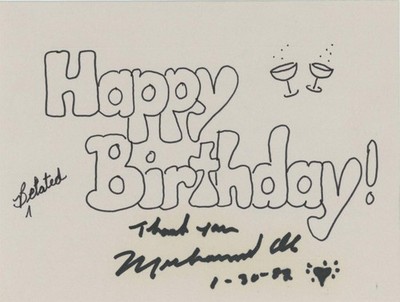 Happy
Belsted
Birthday!
Thank you
Muhammad Ali
1-30-88